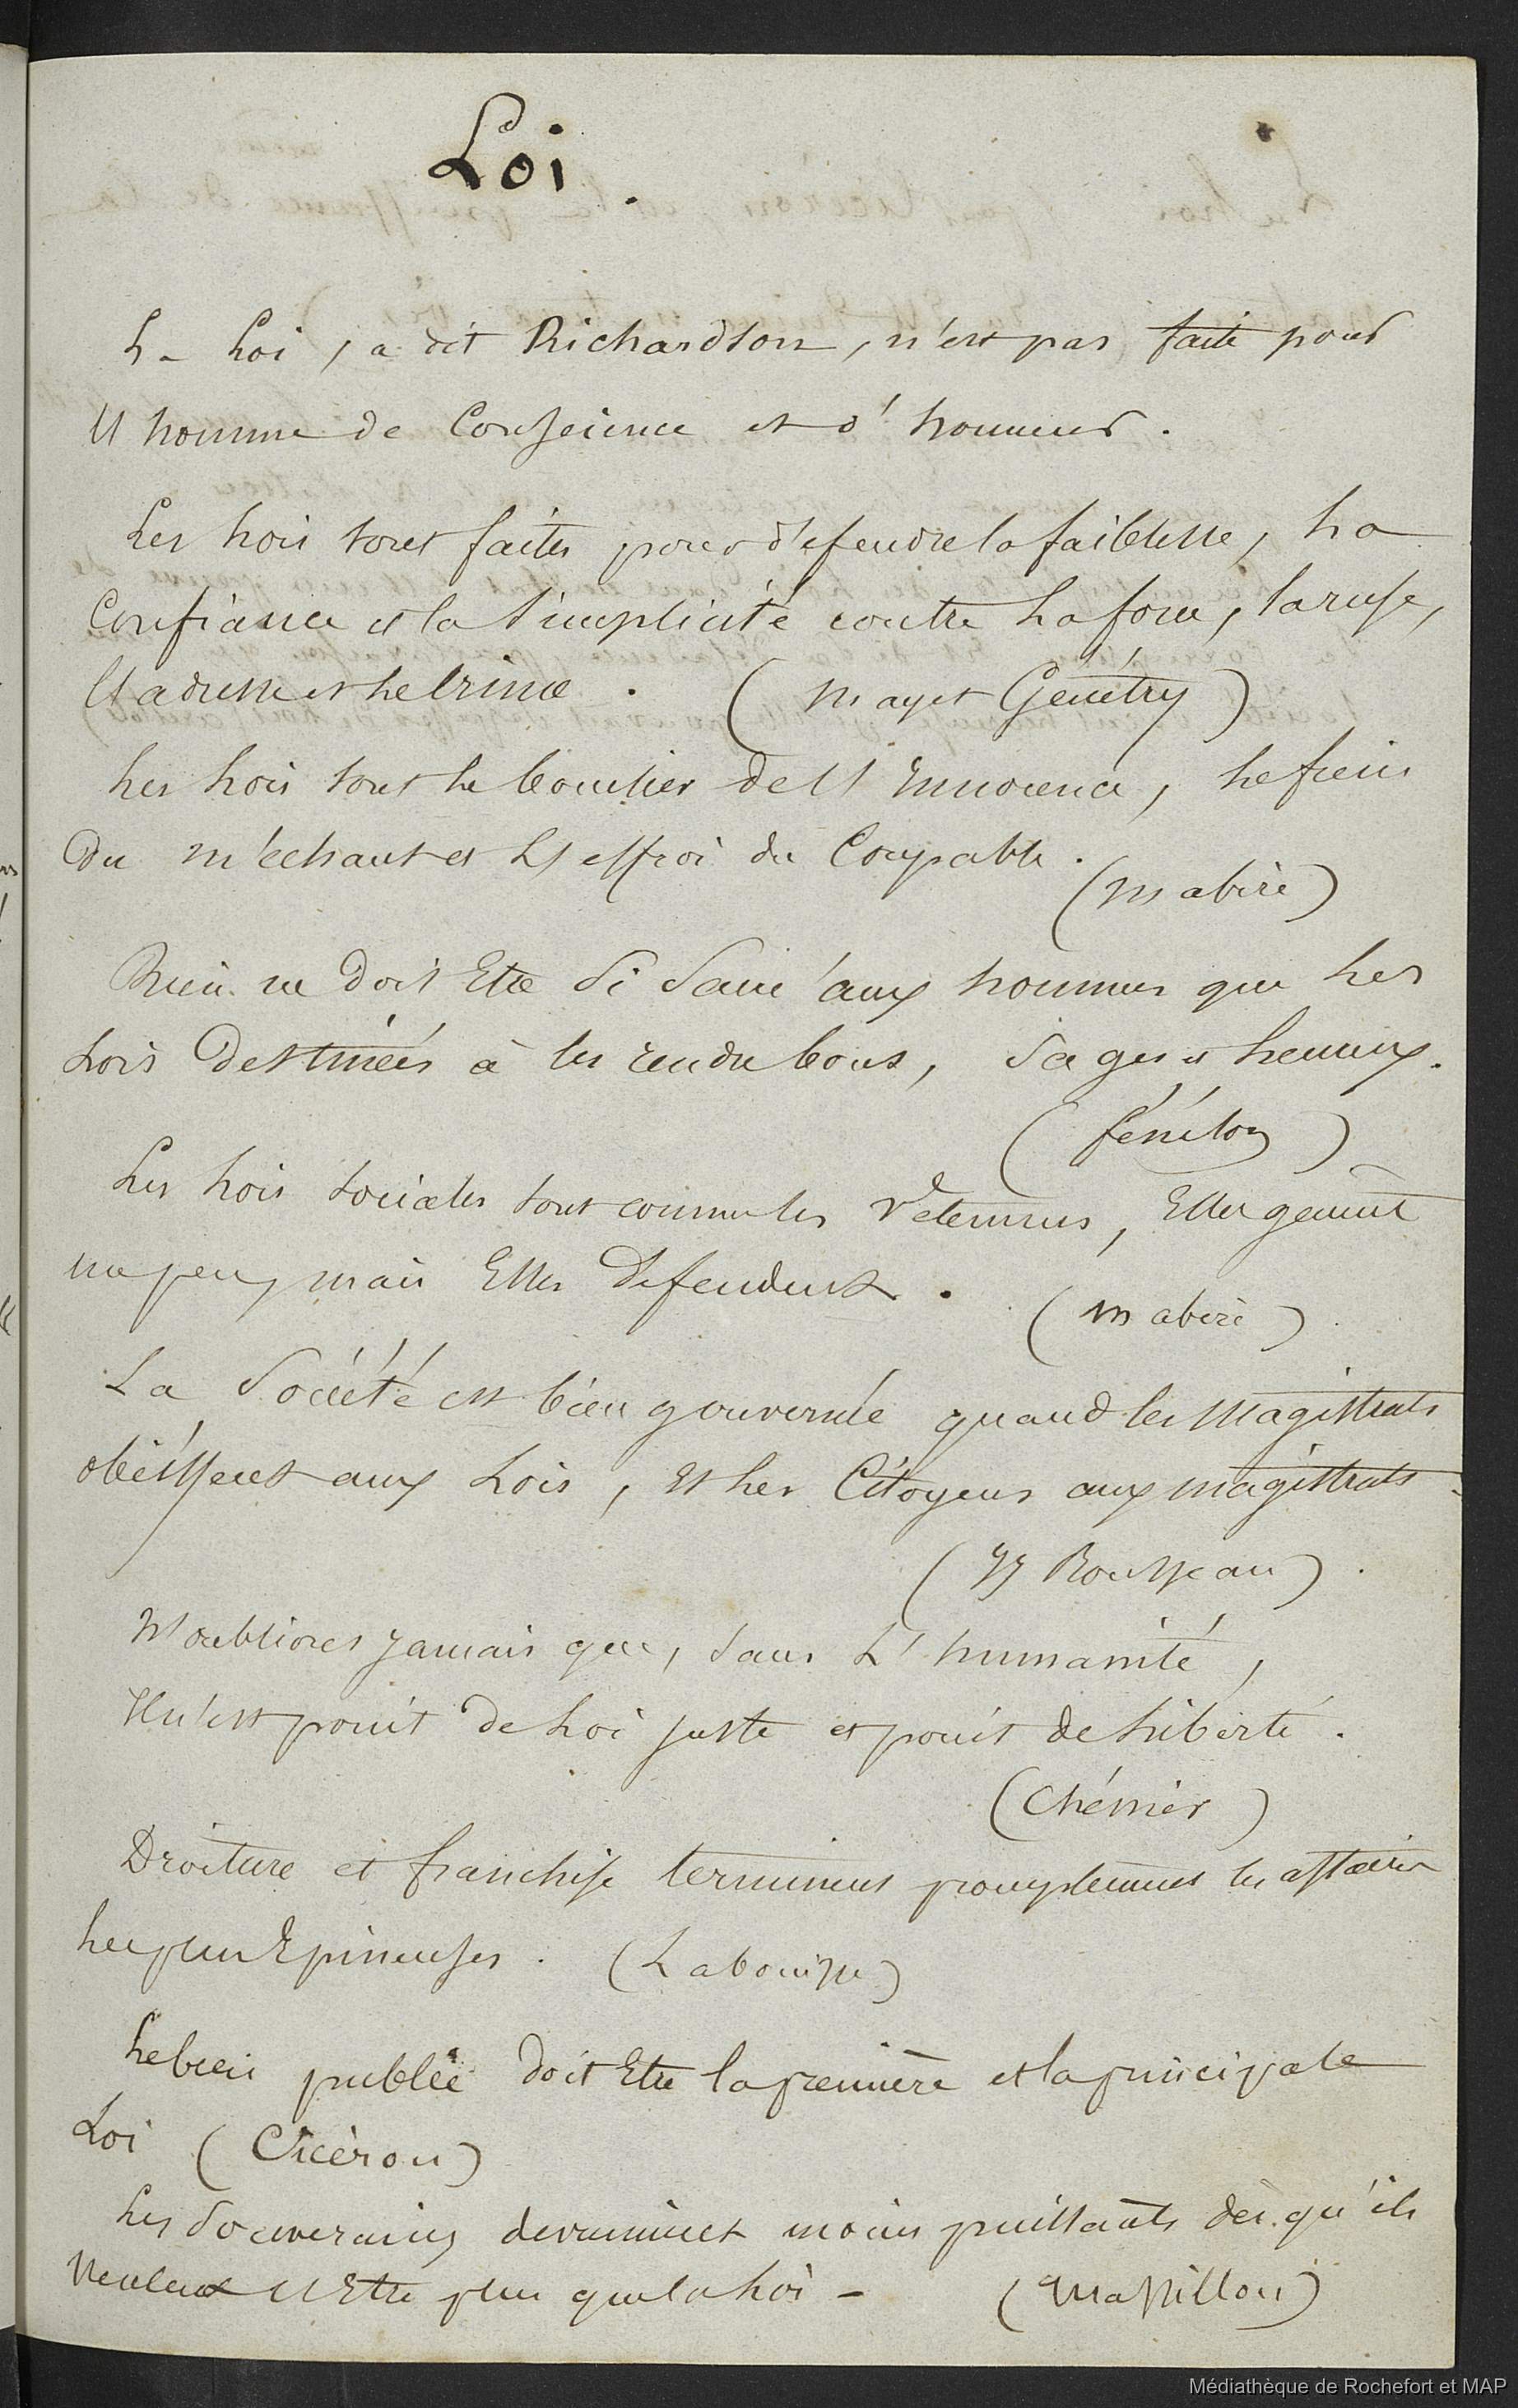 Loi.
La Loi, a dit Richardson, n'est pas faite pour
L'homme de Conscience et d'honneur.
Les Lois sont faites pour défendre la faiblesse, La
Confiance et la simplicité contre La force, la ruse,
L'adresse et Le Crime. (Mayet Génétry)
Les Lois sont Le bouclier de L'Innocence, Le frein
Du méchant et L'effroi du Coupable.
(Mabire)
Rien ne Doit Etre Si Sacré aux hommes que Les
Lois Destinées à les rendre bons, Sages et heureux.
(fénélon)
Les Lois sociales sont comme les Vêtements, Elles gênent
un peu, mais Elles Défendent.
(Mabire)
La Société est bien gouvernée quand les Magistrats
obéissent aux Lois, Et Les Citoyens aux magistrats.
(JJ Rousseau).
N'oublions Jamais que, sans L'humanité,
Il n'est point de Loi Juste et point de Liberté.
(Chénier)
Droiture et franchise terminent promptement les affaires
Les plus Epineuses. (Labouisse)
Le bien public doit Etre la première et la principale
Loi (Cicéron)
Les Souverains deviennent moins puissants dès qu'ils
Veulent L'Etre plus que la Loi - (Massillon)
Médiathèque de Rochefort et MAP